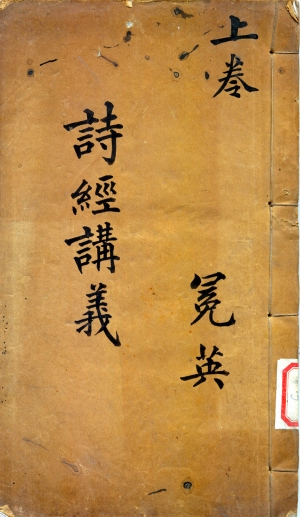 上卷
冕英
詩經講義